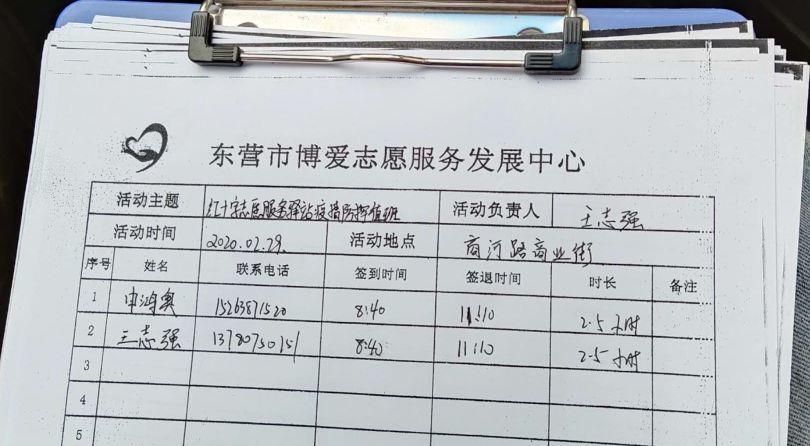 东营市博爱志愿服务发展中心
活动主题 红十字志愿服务驿站疫情防控值班 活动负责人 王志强
活动时间 2020.02.29. 活动地点 商河路商业街
序号 姓名 联系电话 签到时间 签退时间 时长 备注
1 申鸿奥 15263871520 8:40 11:10 2.5小时
2 王志强 13780750151 8:40 11:10 2.5小时
3
4
5